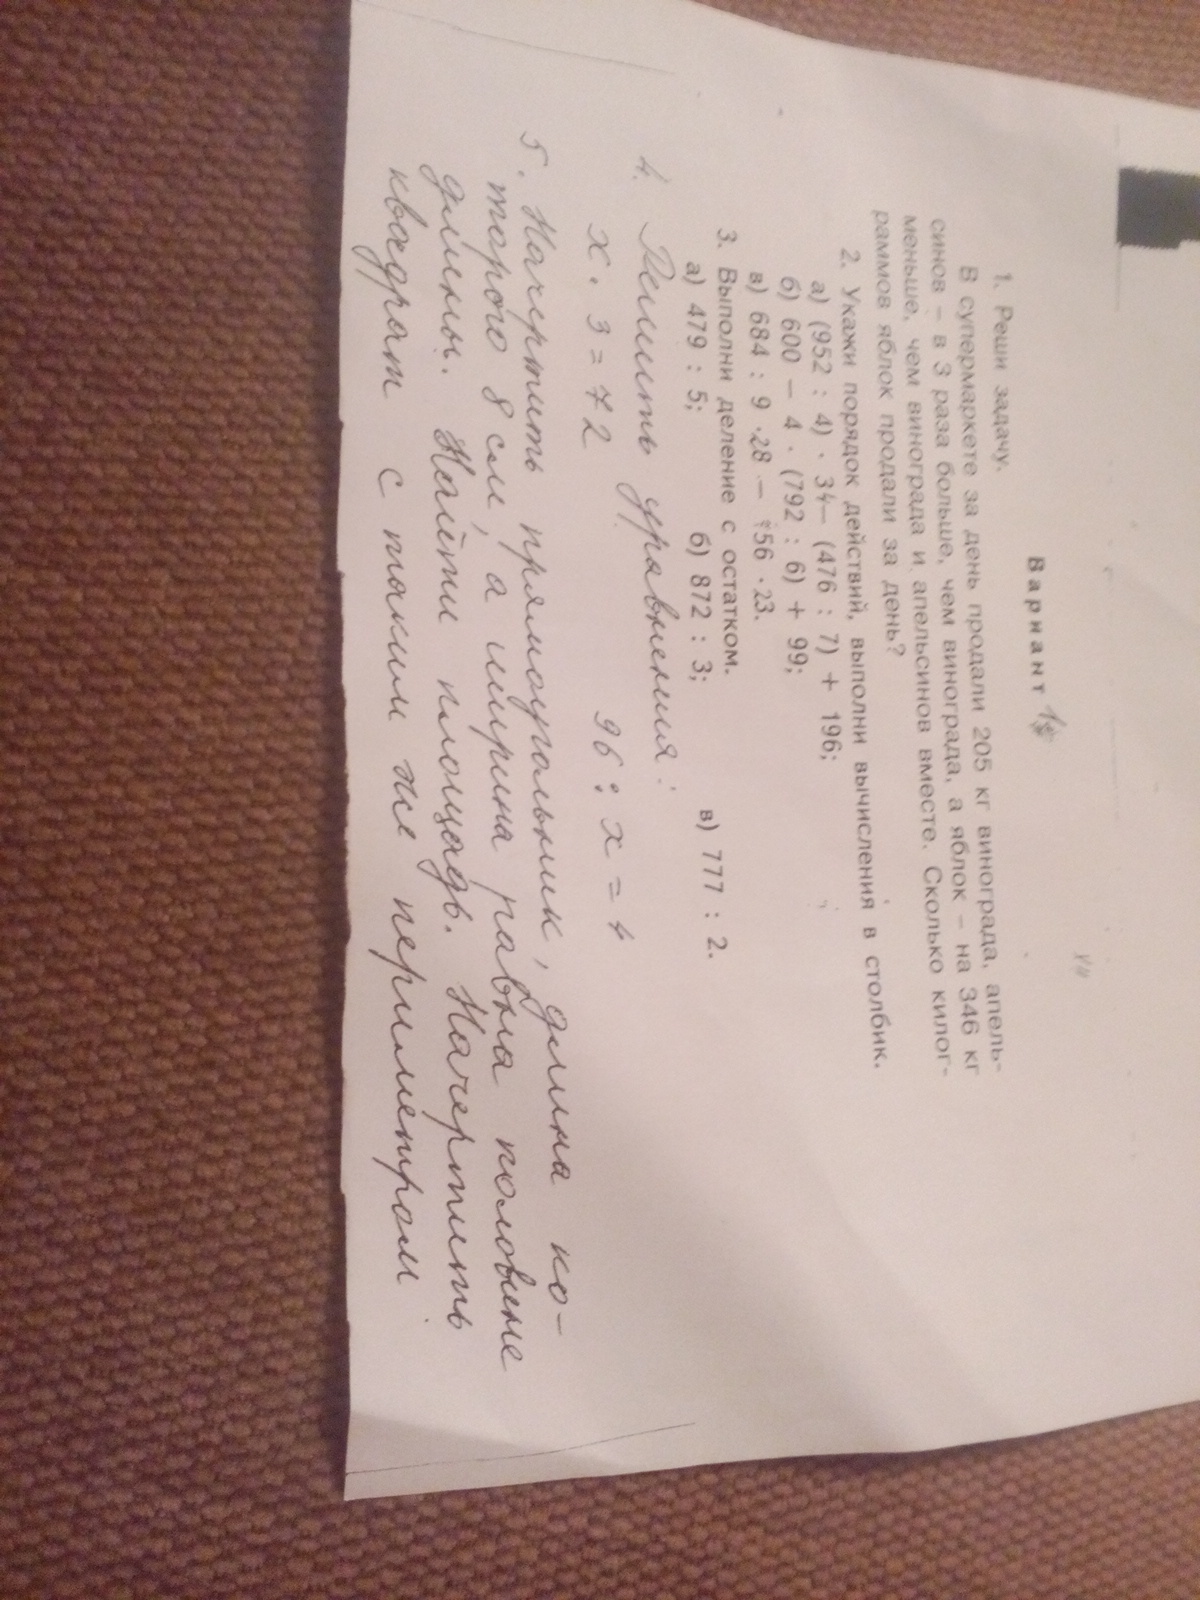 Вариант 1
1. Реши задачу.
В супермаркете за день продали 205 кг винограда, апель-
синов – в 3 раза больше, чем винограда, а яблок – на 346 кг
меньше, чем винограда и апельсинов вместе. Сколько килог-
раммов яблок продали за день?
2. Укажи порядок действий, выполни вычисления в столбик.
а) (952 : 4) · 34 – (476 : 7) + 196;
б) 600 – 4 · (792 : 6) + 99;
в) 684 : 9 · 28 – 56 · 23.
3. Выполни деление с остатком.
а) 479 : 5; б) 872 : 3; в) 777 : 2.
4. Решить уравнения:
х · 3 = 72 96 : х = 4
5. Начертить прямоугольник, длина ко-
торого 8 см, а ширина равна половине
длины. Найти площадь. Начертить
квадрат с таким же периметром